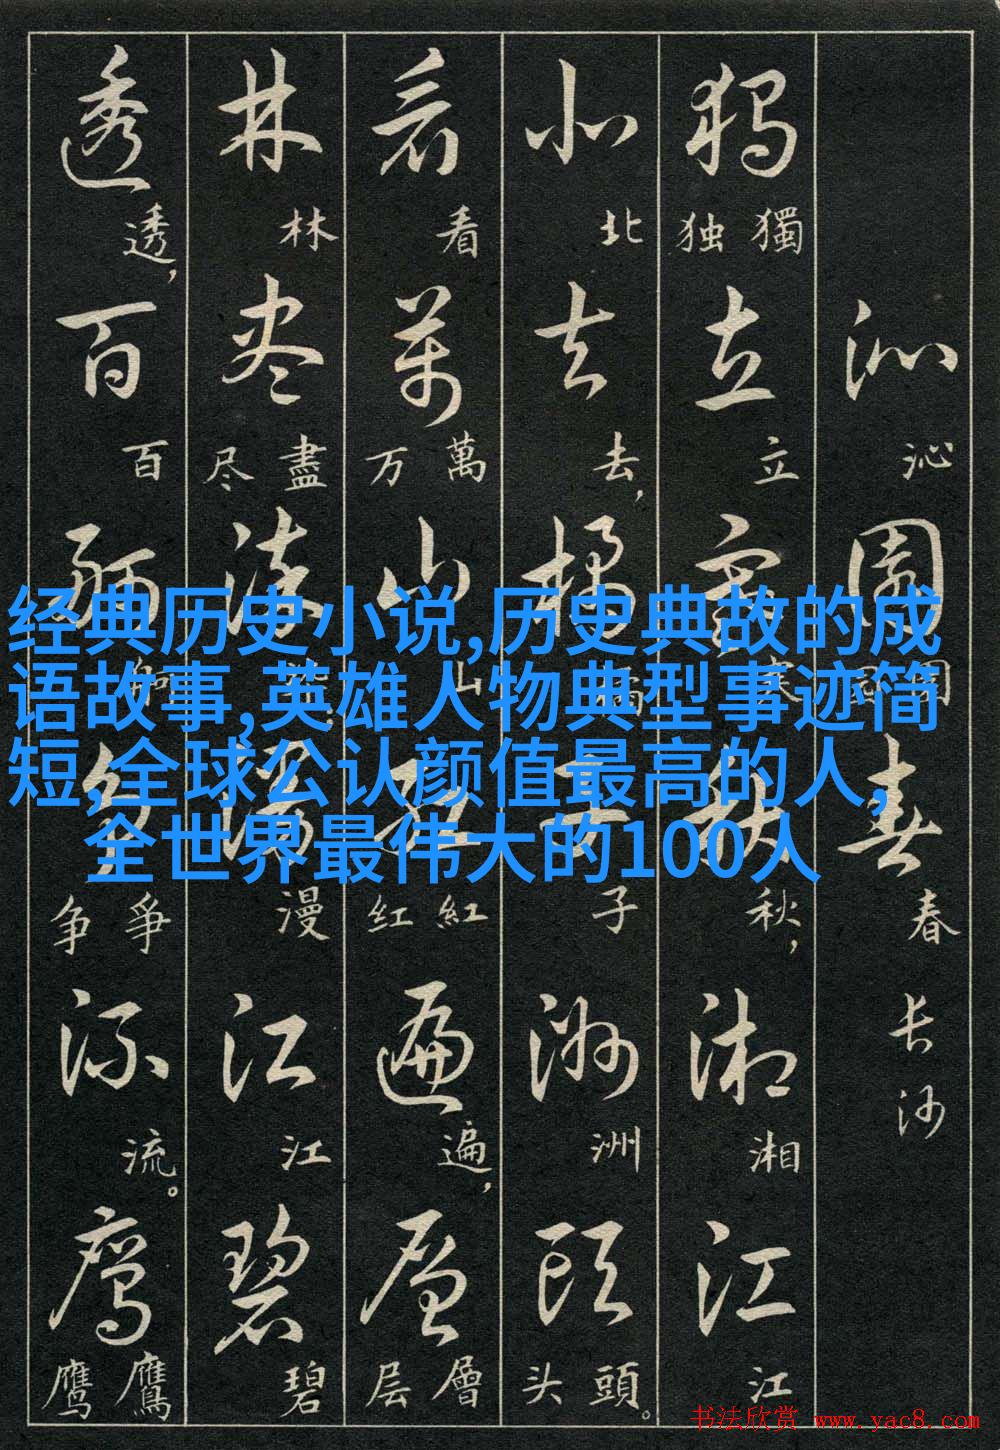 经典历史小说,历史典故的成
语故事,英雄人物典型事迹简
短,全球公认颜值最高的人,
全世界最伟大的100人
沁園春
沁 園 春 长沙
独立寒秋湘江
獨 独 立 寒 秋， 湘 江
北去橘子洲頭
北 去， 橘 子 洲 頭 头。
看萬山紅遍層
看 萬 万 山 紅 红 遍， 層 层
林尽染漫江碧
林 盡 尽 漫 江 碧
透百舸争流鹰
透， 百 舸 爭 争 流。 鷹 鹰
书法欣赏 www.yac8.com